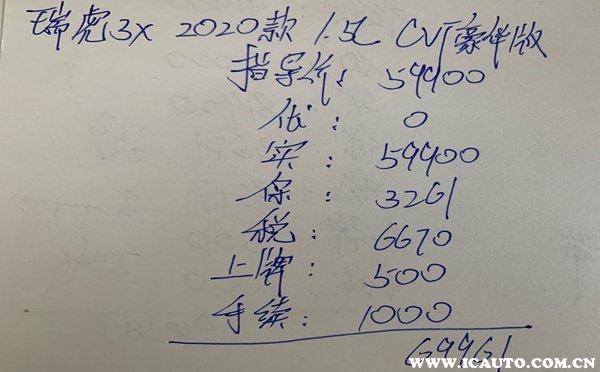 瑞虎3X 2020款 1.5L CVT豪华版
指导价: 59900
优: 0
实: 59900
保: 3261
税: 6670
上牌: 500
手续: 1000
69961
WWW.ICAUTO.COM.CN